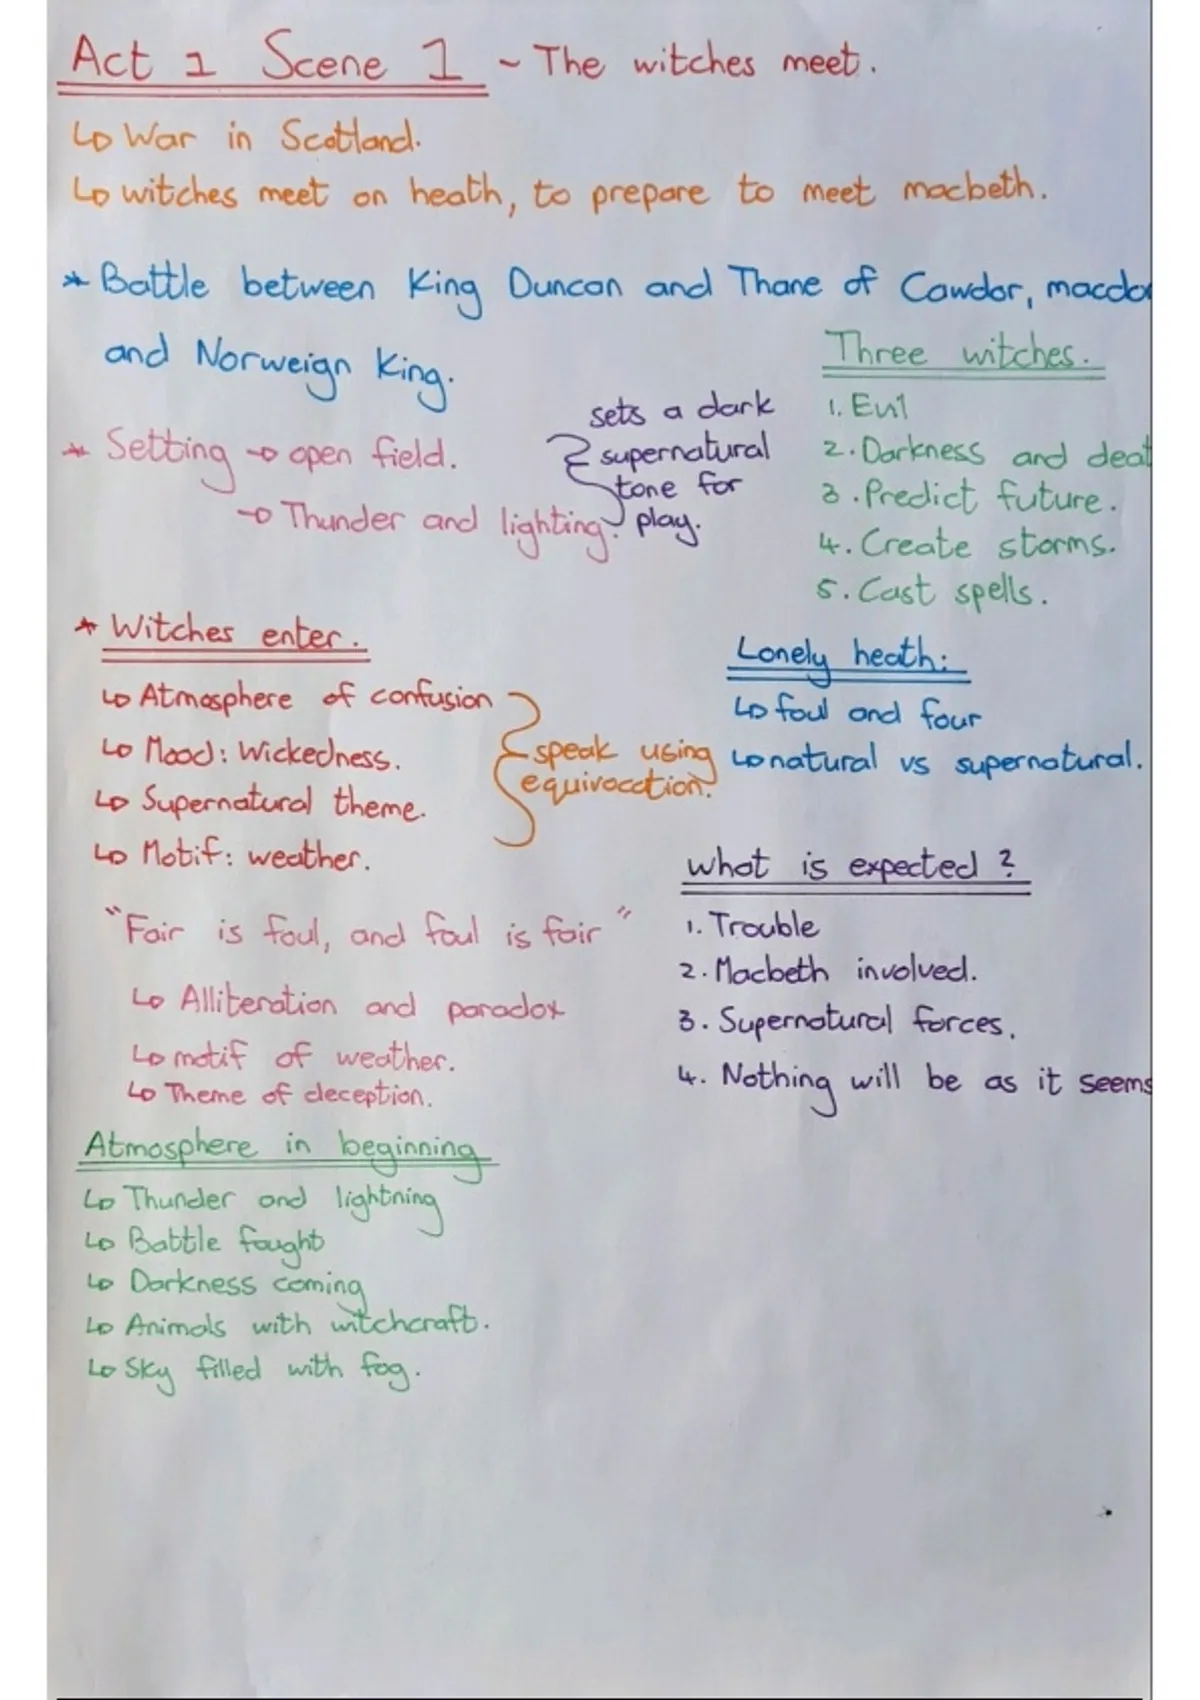 Act 1 Scene 1 ~ The witches meet.
↳ War in Scotland.
↳ witches meet on heath, to prepare to meet macbeth.
* Battle between King Duncan and Thane of Cawdor, macdo
and Norweign King.
* Setting → open field.
→ Thunder and lighting.
sets a dark
supernatural
tone for
play.
Three witches.
1. Evil
2. Darkness and deat
3. Predict future.
4. Create storms.
5. Cast spells.
* Witches enter.
↳ Atmosphere of confusion
↳ Mood: Wickedness.
↳ Supernatural theme.
↳ Motif: weather.
speak using
equivocation.
Lonely heath:
↳ foul and four
↳ natural vs supernatural.
"Fair is foul, and foul is fair"
↳ Alliteration and paradox
↳ motif of weather.
↳ Theme of deception.
what is expected?
1. Trouble
2. Macbeth involved.
3. Supernatural forces.
4. Nothing will be as it seems
Atmosphere in beginning
↳ Thunder and lightning
↳ Battle fought
↳ Darkness coming
↳ Animals with witchcraft.
↳ Sky filled with fog.